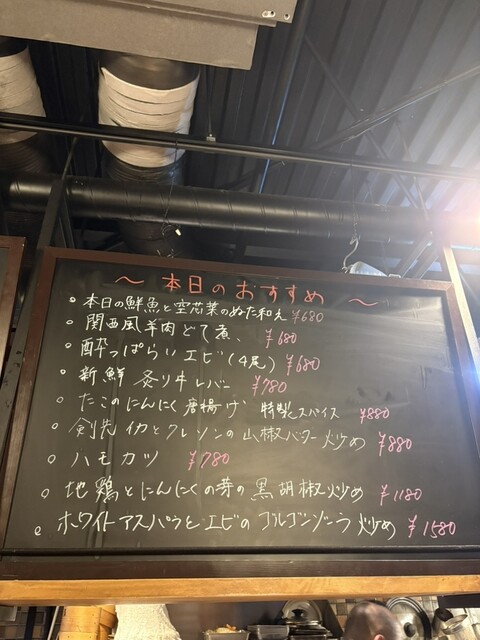 ～ 本日のおすすめ ～
○ 本日の鮮魚と空芯菜のぬた和え ¥680
○ 関西風羊肉どて煮、 ¥680
○ 酔っぱらいエビ(4尾) ¥680
○ 新鮮 炙り牛レバー ¥780
○ たこのにんにく唐揚げ 特製スパイス ¥880
○ 剣先イカとクレソンの山椒バター炒め ¥880
○ ハモカツ ¥780
○ 地鶏とにんにくの芽の黒胡椒炒め ¥1180
○ ホワイトアスパラとエビのゴルゴンゾーラ炒め ¥1580